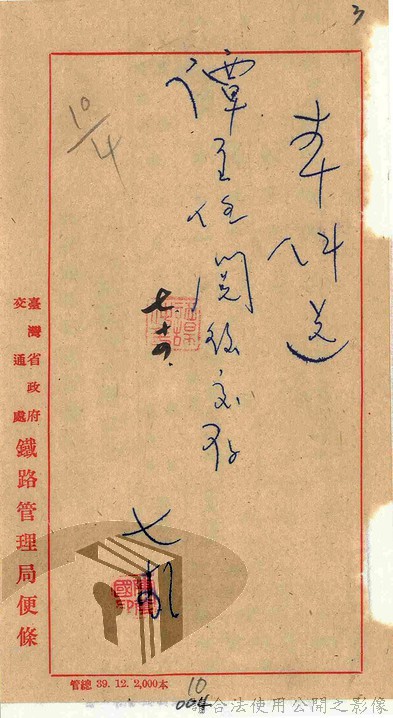 3
本件送
譚主任閱後交存
七、十六
10/4
臺灣省政府
交通處
鐵路管理局便條
管總 39. 12. 2,000本
10
004
合法使用公開之影像